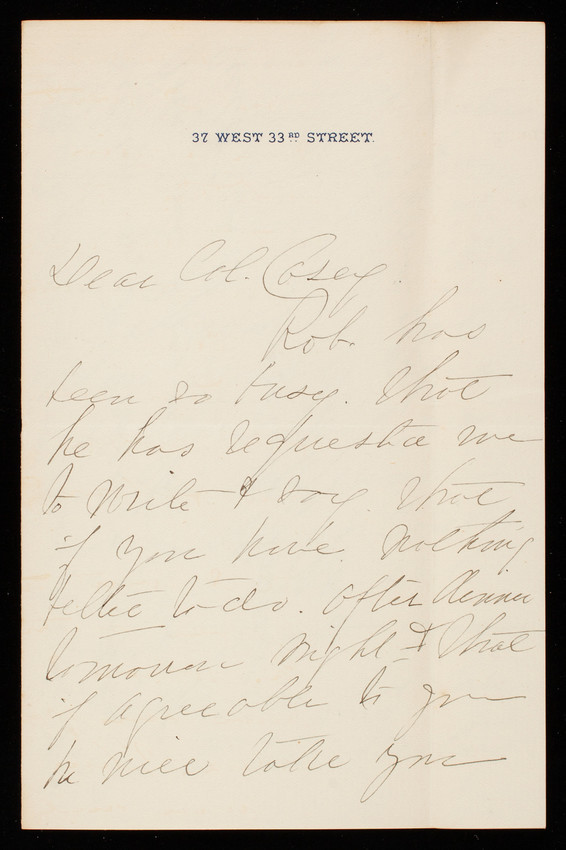 37 WEST 33RD STREET.
Dear Col. Casey.
Rob. has
been so busy. that
he has requested me
to write & say. that
if you have. nothing
better to do. after dinner
tomorrow night & that
if agreeable to you
he will take you